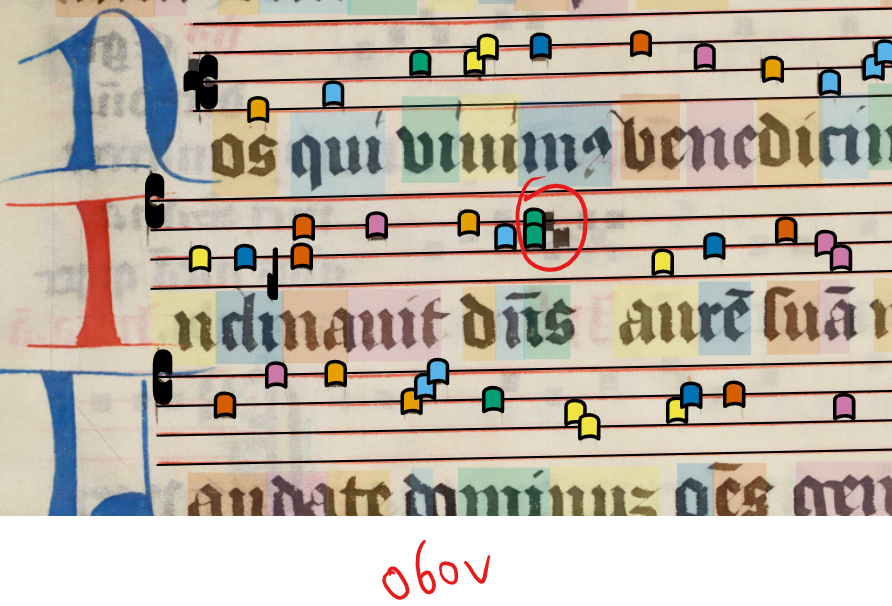 os qui viuim⁹ benedicim
Inclinauit dn̄s aurē suā
Laudate dominuz oēs gen
obov